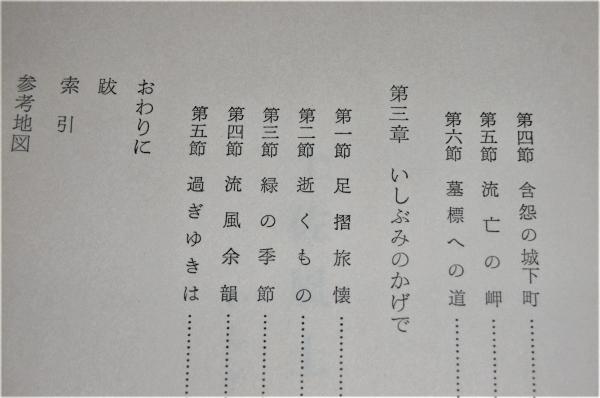 第四節 含怨の城下町…………
第五節 流亡の岬…………
第六節 墓標への道…………
第三章 いしぶみのかげで
第一節 足摺旅懐…………
第二節 逝くもの…………
第三節 緑の季節…………
第四節 流風余韻…………
第五節 過ぎゆきは…………
おわりに
跋
索引
参考地図